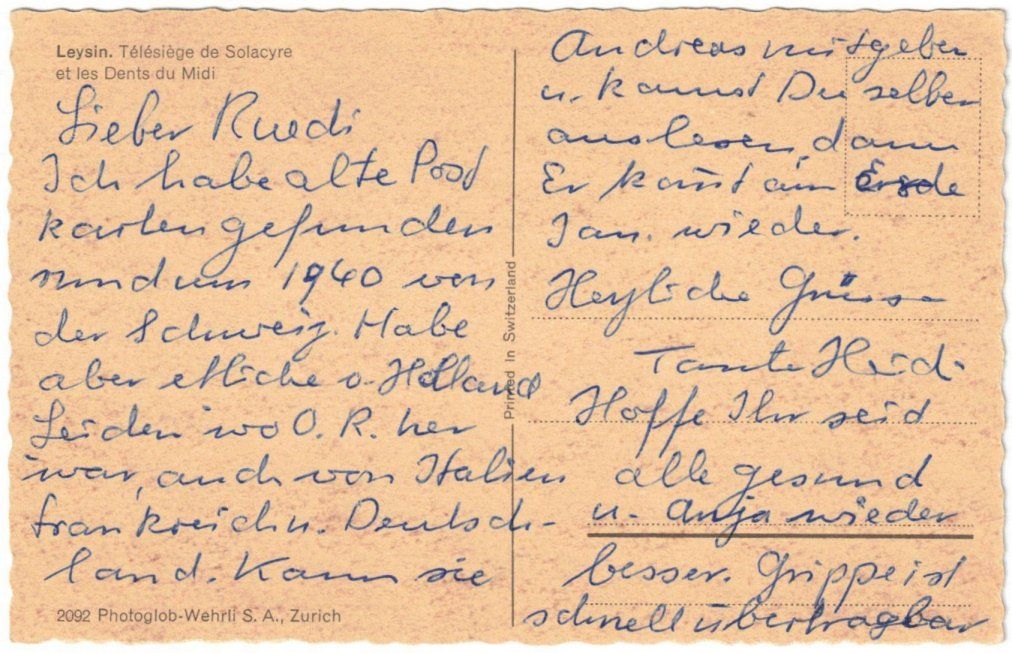 Leysin. Télésiège de Solacyre
et les Dents du Midi
Lieber Ruedi
Ich habe alte Post
karten gefunden
rund um 1940 von
der Schweiz. Habe
aber etliche v. Holland
Leiden wo O. R. her
war, auch von Italien
Frankreich u. Deutsch-
land. Kann sie
2092 Photoglob-Wehrli S. A., Zurich
Printed in Switzerland
Andreas mitgeben
u. kannst Du selber
auslesen, dann
Er kommt am Ende
Jan. wieder.
Herzliche Grüsse
Tante Heidi
Hoffe Ihr seid
alle gesund
u. Anja wieder
besser. Grippe ist
schnell übertragbar